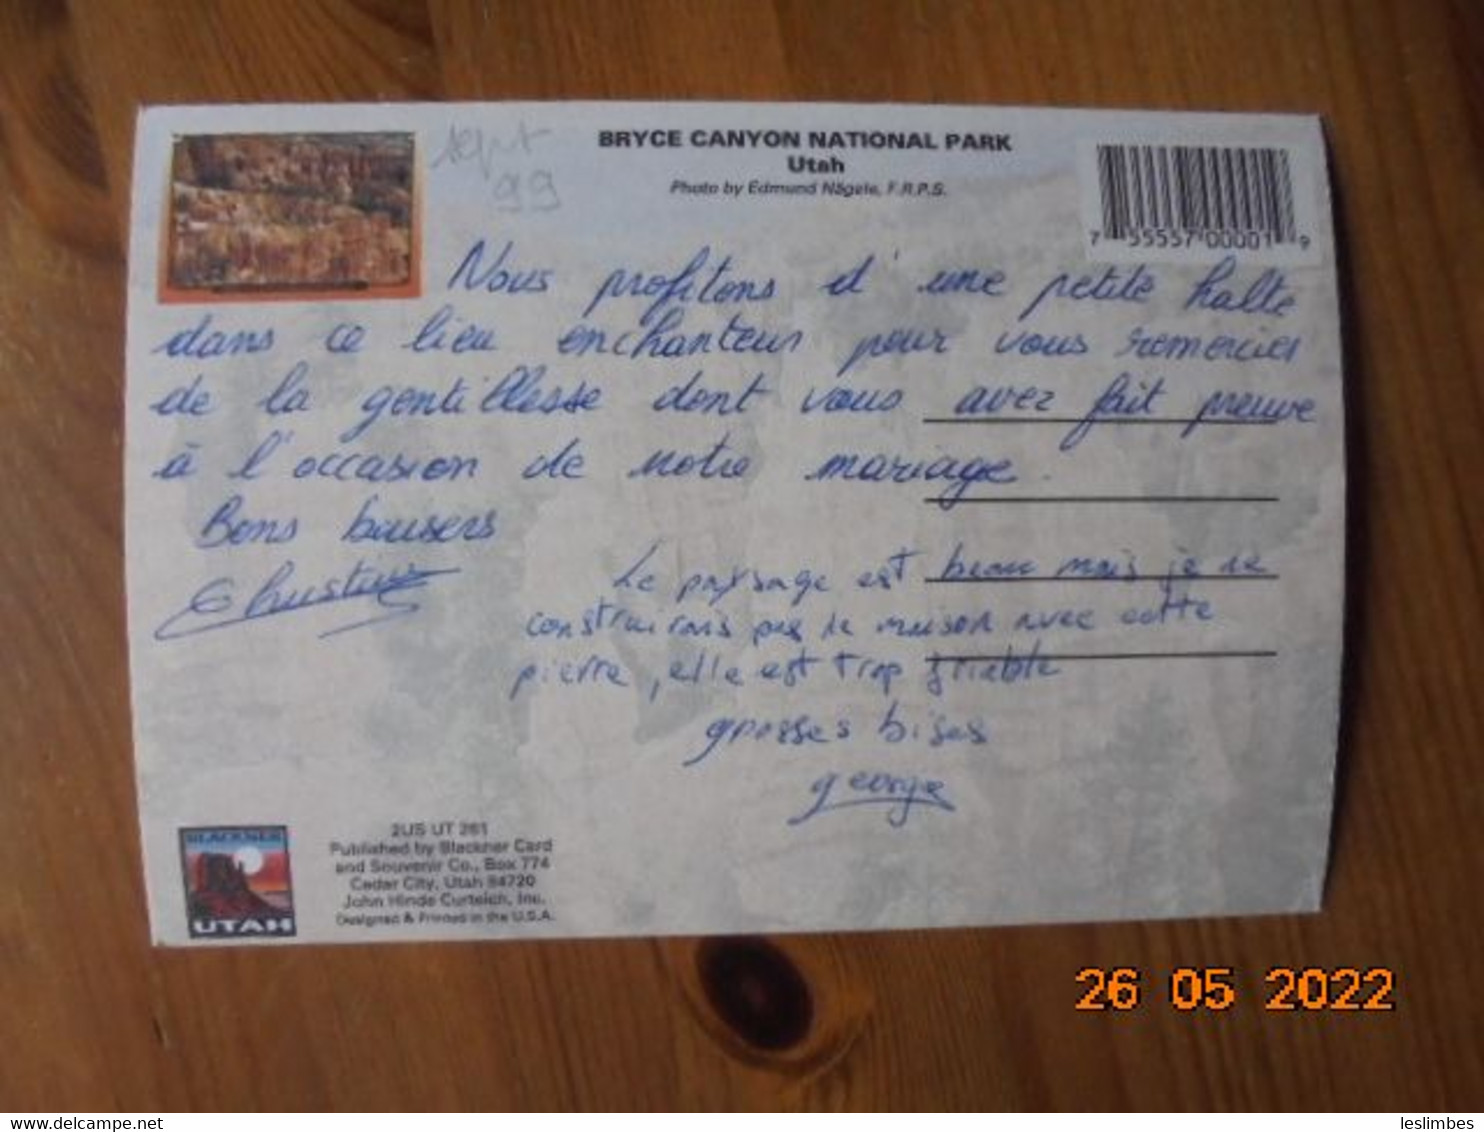 sept
99
BRYCE CANYON NATIONAL PARK
Utah
Photo by Edmund Nägele, F.R.P.S.
7 55557 00001 9
Nous profitons d'une petite halte
dans ce lieu enchanteur pour vous remercier
de la gentillesse dont vous avez fait preuve
à l'occasion de notre mariage.
Bons baisers
Le paysage est beau mais je ne
construirais pas la maison avec cette
pierre, elle est trop friable
grosses bises
george
BLACKNER
UTAH
2US UT 261
Published by Blackner Card
and Souvenir Co., Box 774
Cedar City, Utah 84720
John Hinde Curteich, Inc.
Designed & Printed in the U.S.A.
26 05 2022
www.delcampe.net
leslimbes